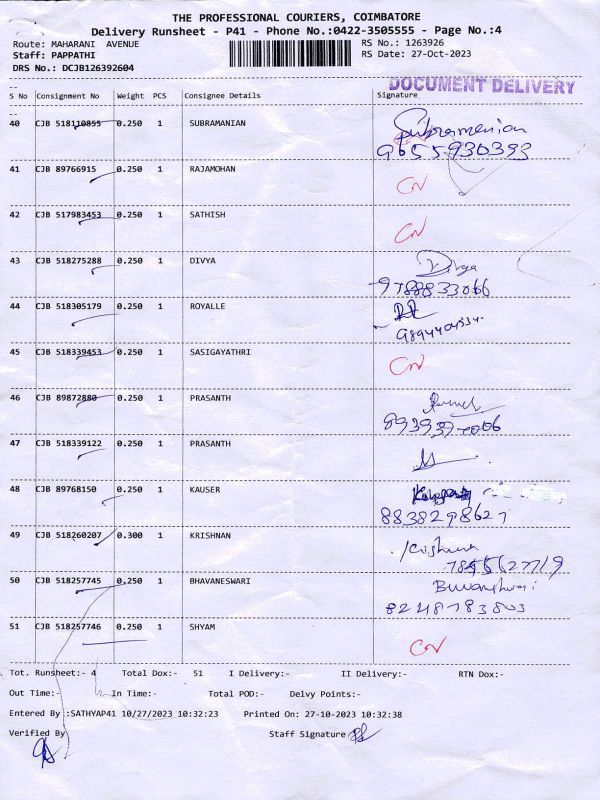 THE PROFESSIONAL COURIERS, COIMBATORE
Delivery Runsheet - P41 - Phone No.:0422-3505555 - Page No.:4
Route: MAHARANI AVENUE RS No.: 1263926
Staff: PAPPATHI RS Date: 27-Oct-2023
DRS No.: DCJB126392604
DOCUMENT DELIVERY
S No Consignment No Weight PCS Consignee Details Signature
40 CJB 518110855 0.250 1 SUBRAMANIAN Subramanian
9655930393
41 CJB 89766915 0.250 1 RAJAMOHAN CN
42 CJB 517983453 0.250 1 SATHISH CN
43 CJB 518275288 0.250 1 DIVYA Divya
9788833066
44 CJB 518305179 0.250 1 ROYALLE
45 CJB 518339453 0.250 1 SASIGAYATHRI CN
46 CJB 89872880 0.250 1 PRASANTH
47 CJB 518339122 0.250 1 PRASANTH
48 CJB 89768150 0.250 1 KAUSER
8838298627
49 CJB 518260207 0.300 1 KRISHNAN Krishnan
50 CJB 518257745 0.250 1 BHAVANESWARI
8248783803
51 CJB 518257746 0.250 1 SHYAM CN
Tot. Runsheet:- 4 Total Dox:- 51 I Delivery:- II Delivery:- RTN Dox:-
Out Time:- In Time:- Total POD:- Delvy Points:-
Entered By :SATHYAP41 10/27/2023 10:32:23 Printed On: 27-10-2023 10:32:38
Verified By Staff Signature